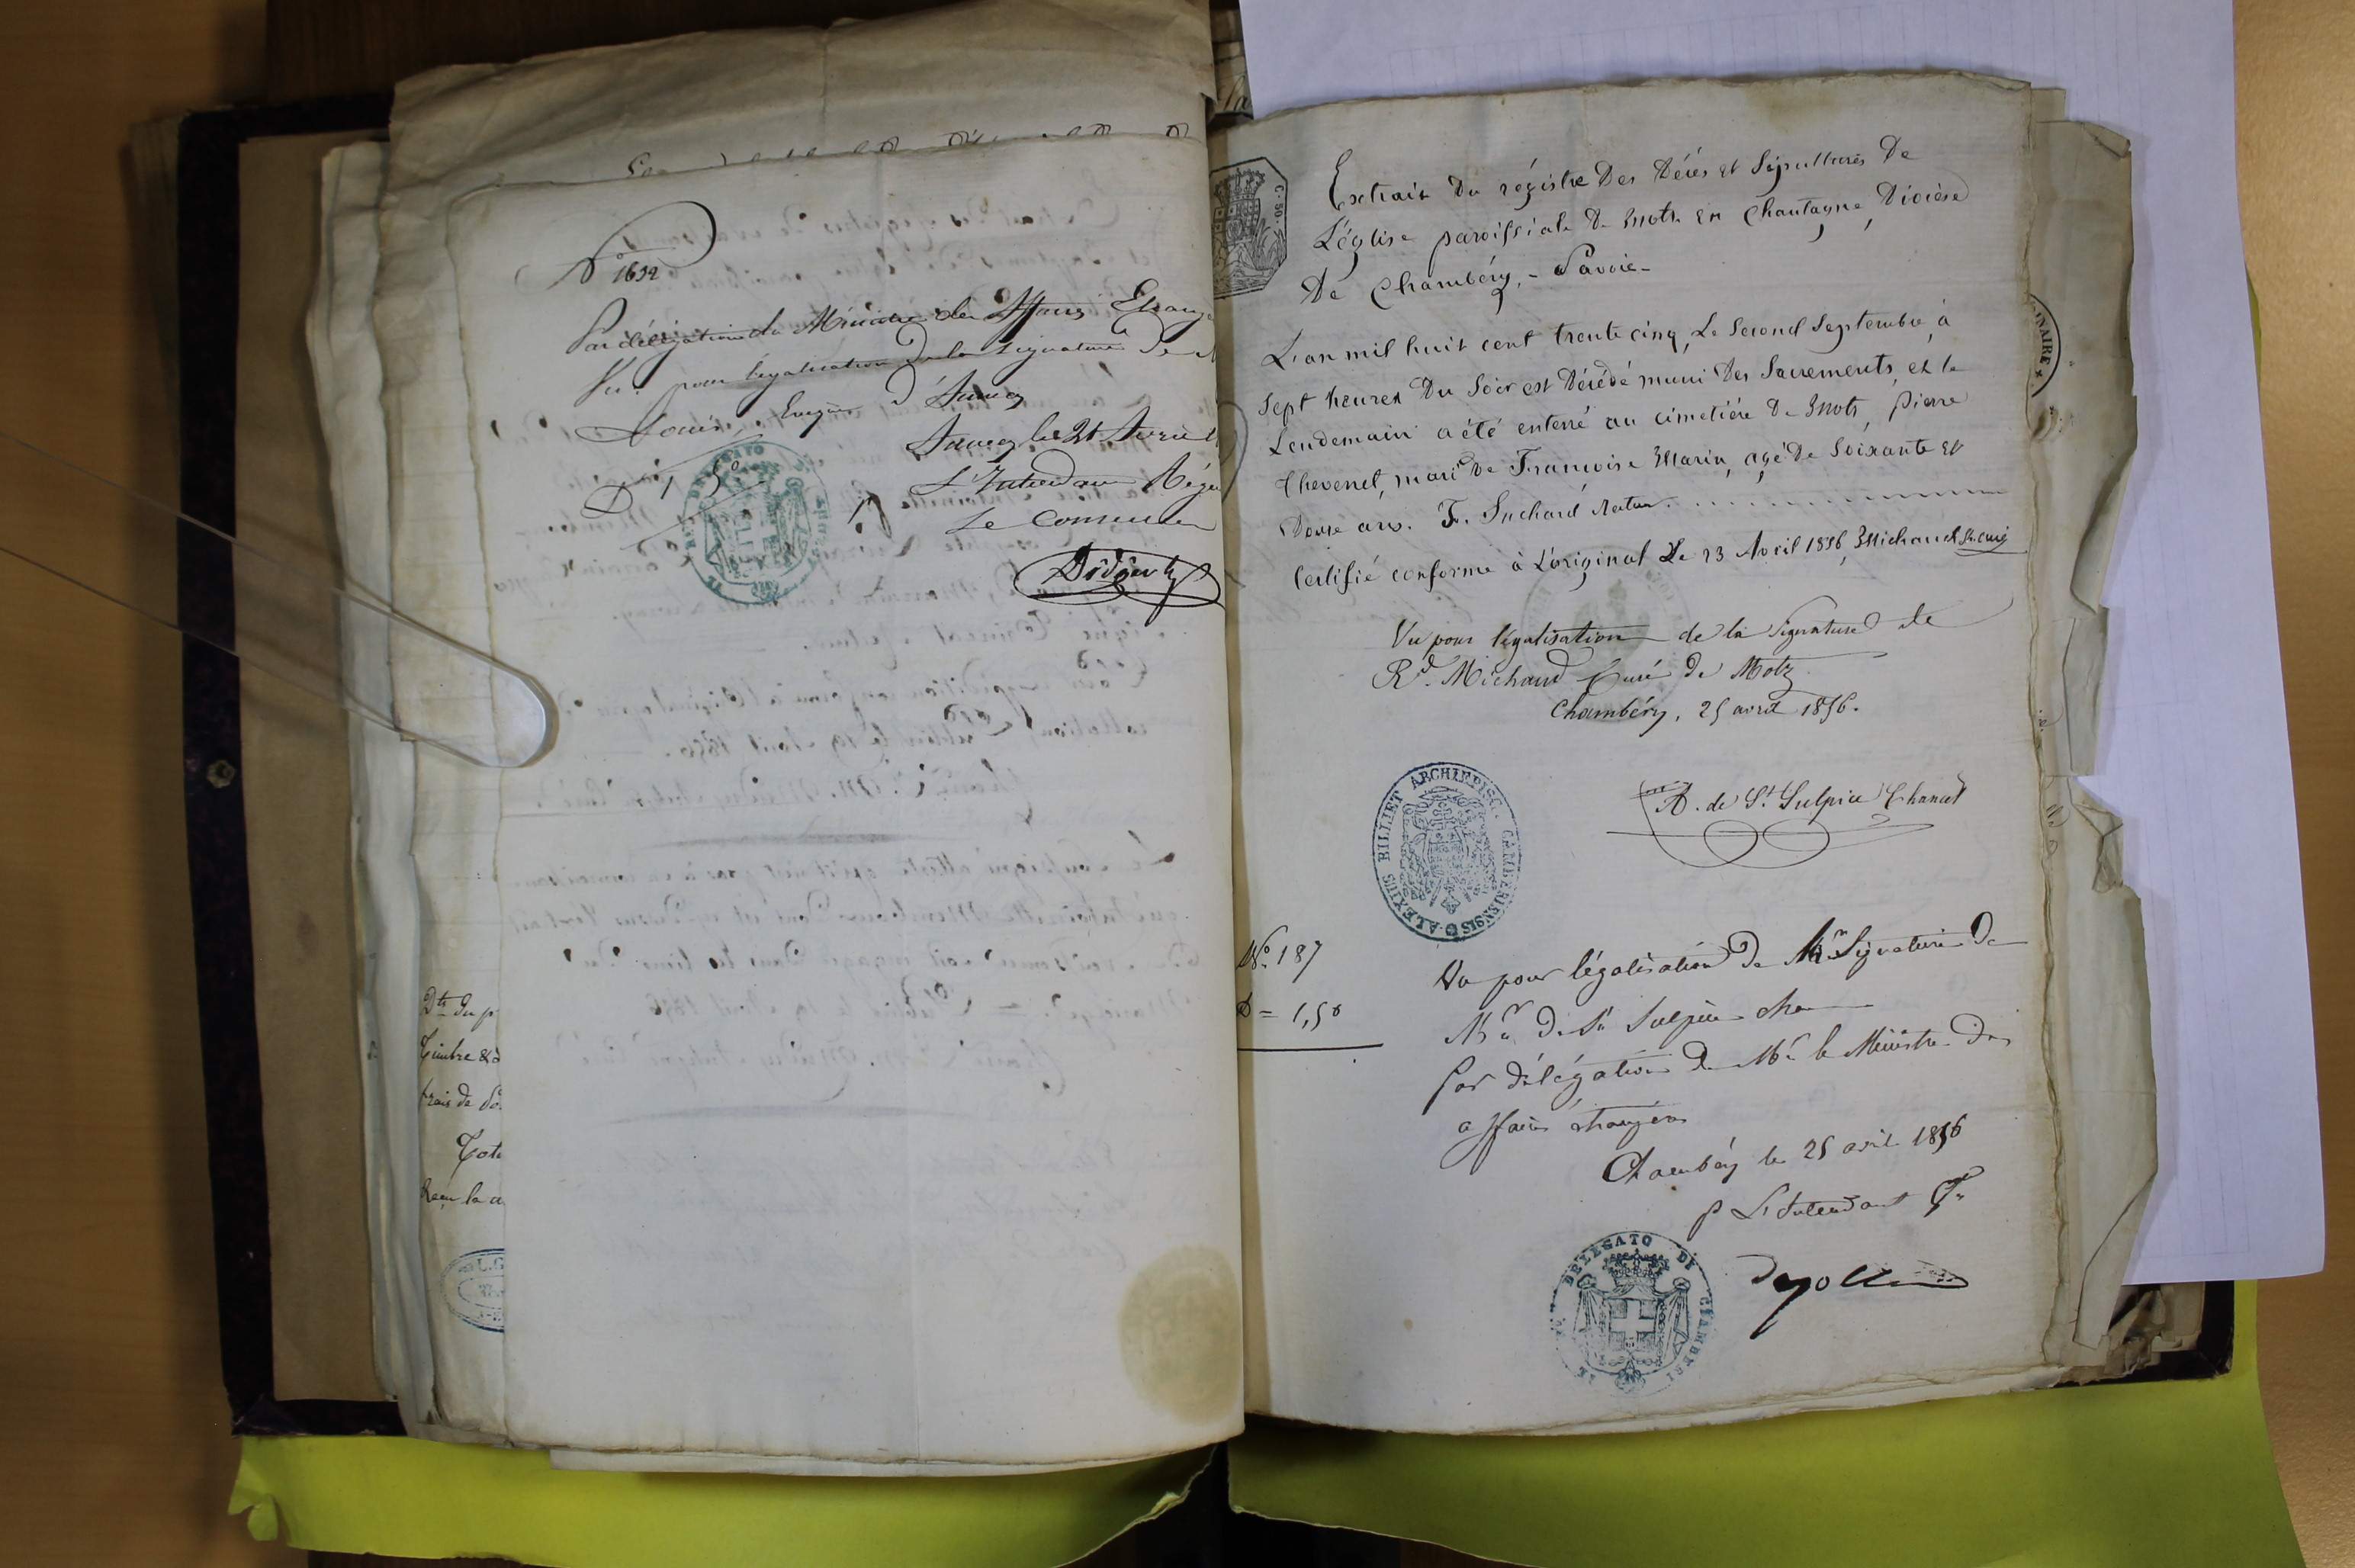 N° 1632
Par délégation du Ministre des Affaires Etrang
Vu pour légalisation de la signature de M
Louis, Evêque d'Annecy
Annecy le 21 Avril
D 1 50
L'Intendant
Le Conseiller
Dts du p
Timbre &
frais de
Tot
Reçu la
C. 50.
Extrait du régistre des décès et sépultures de
L'église paroissiale de Motz en Chautagne, Diocèse
De Chambéry, - Savoie -
L'an mil huit cent trente cinq, Le second Septembre, à
sept heures du soir est décédé muni des Sacrements, et le
Lendemain a été enterré au cimetière de Mots, pierre
Chevenet, mari de Françoise Marin, agé de soixante et
Douse ans. F. Suchard Recteur.
Certifié conforme à L'original Le 23 Avril 1856, Michaud Rd curé
Vu pour légalisation de la signature de
Rd. Michaud Curé de Motz
Chambéry, 25 avril 1856.
A. de St. Sulpice Chanct
ALEXIUS BILLIET ARCHIEPISC. CAMBERIENSIS
No. 187
D = 1,50
Vu pour légalisation de la Signature de
Mr. de St Sulpice cha
Par délégation de Mr le Ministre des
affaires étrangères
Chambéry le 25 avril 1856
p L'Intendant Gl
DELEGATO DI CIAMBERI
INAIRE